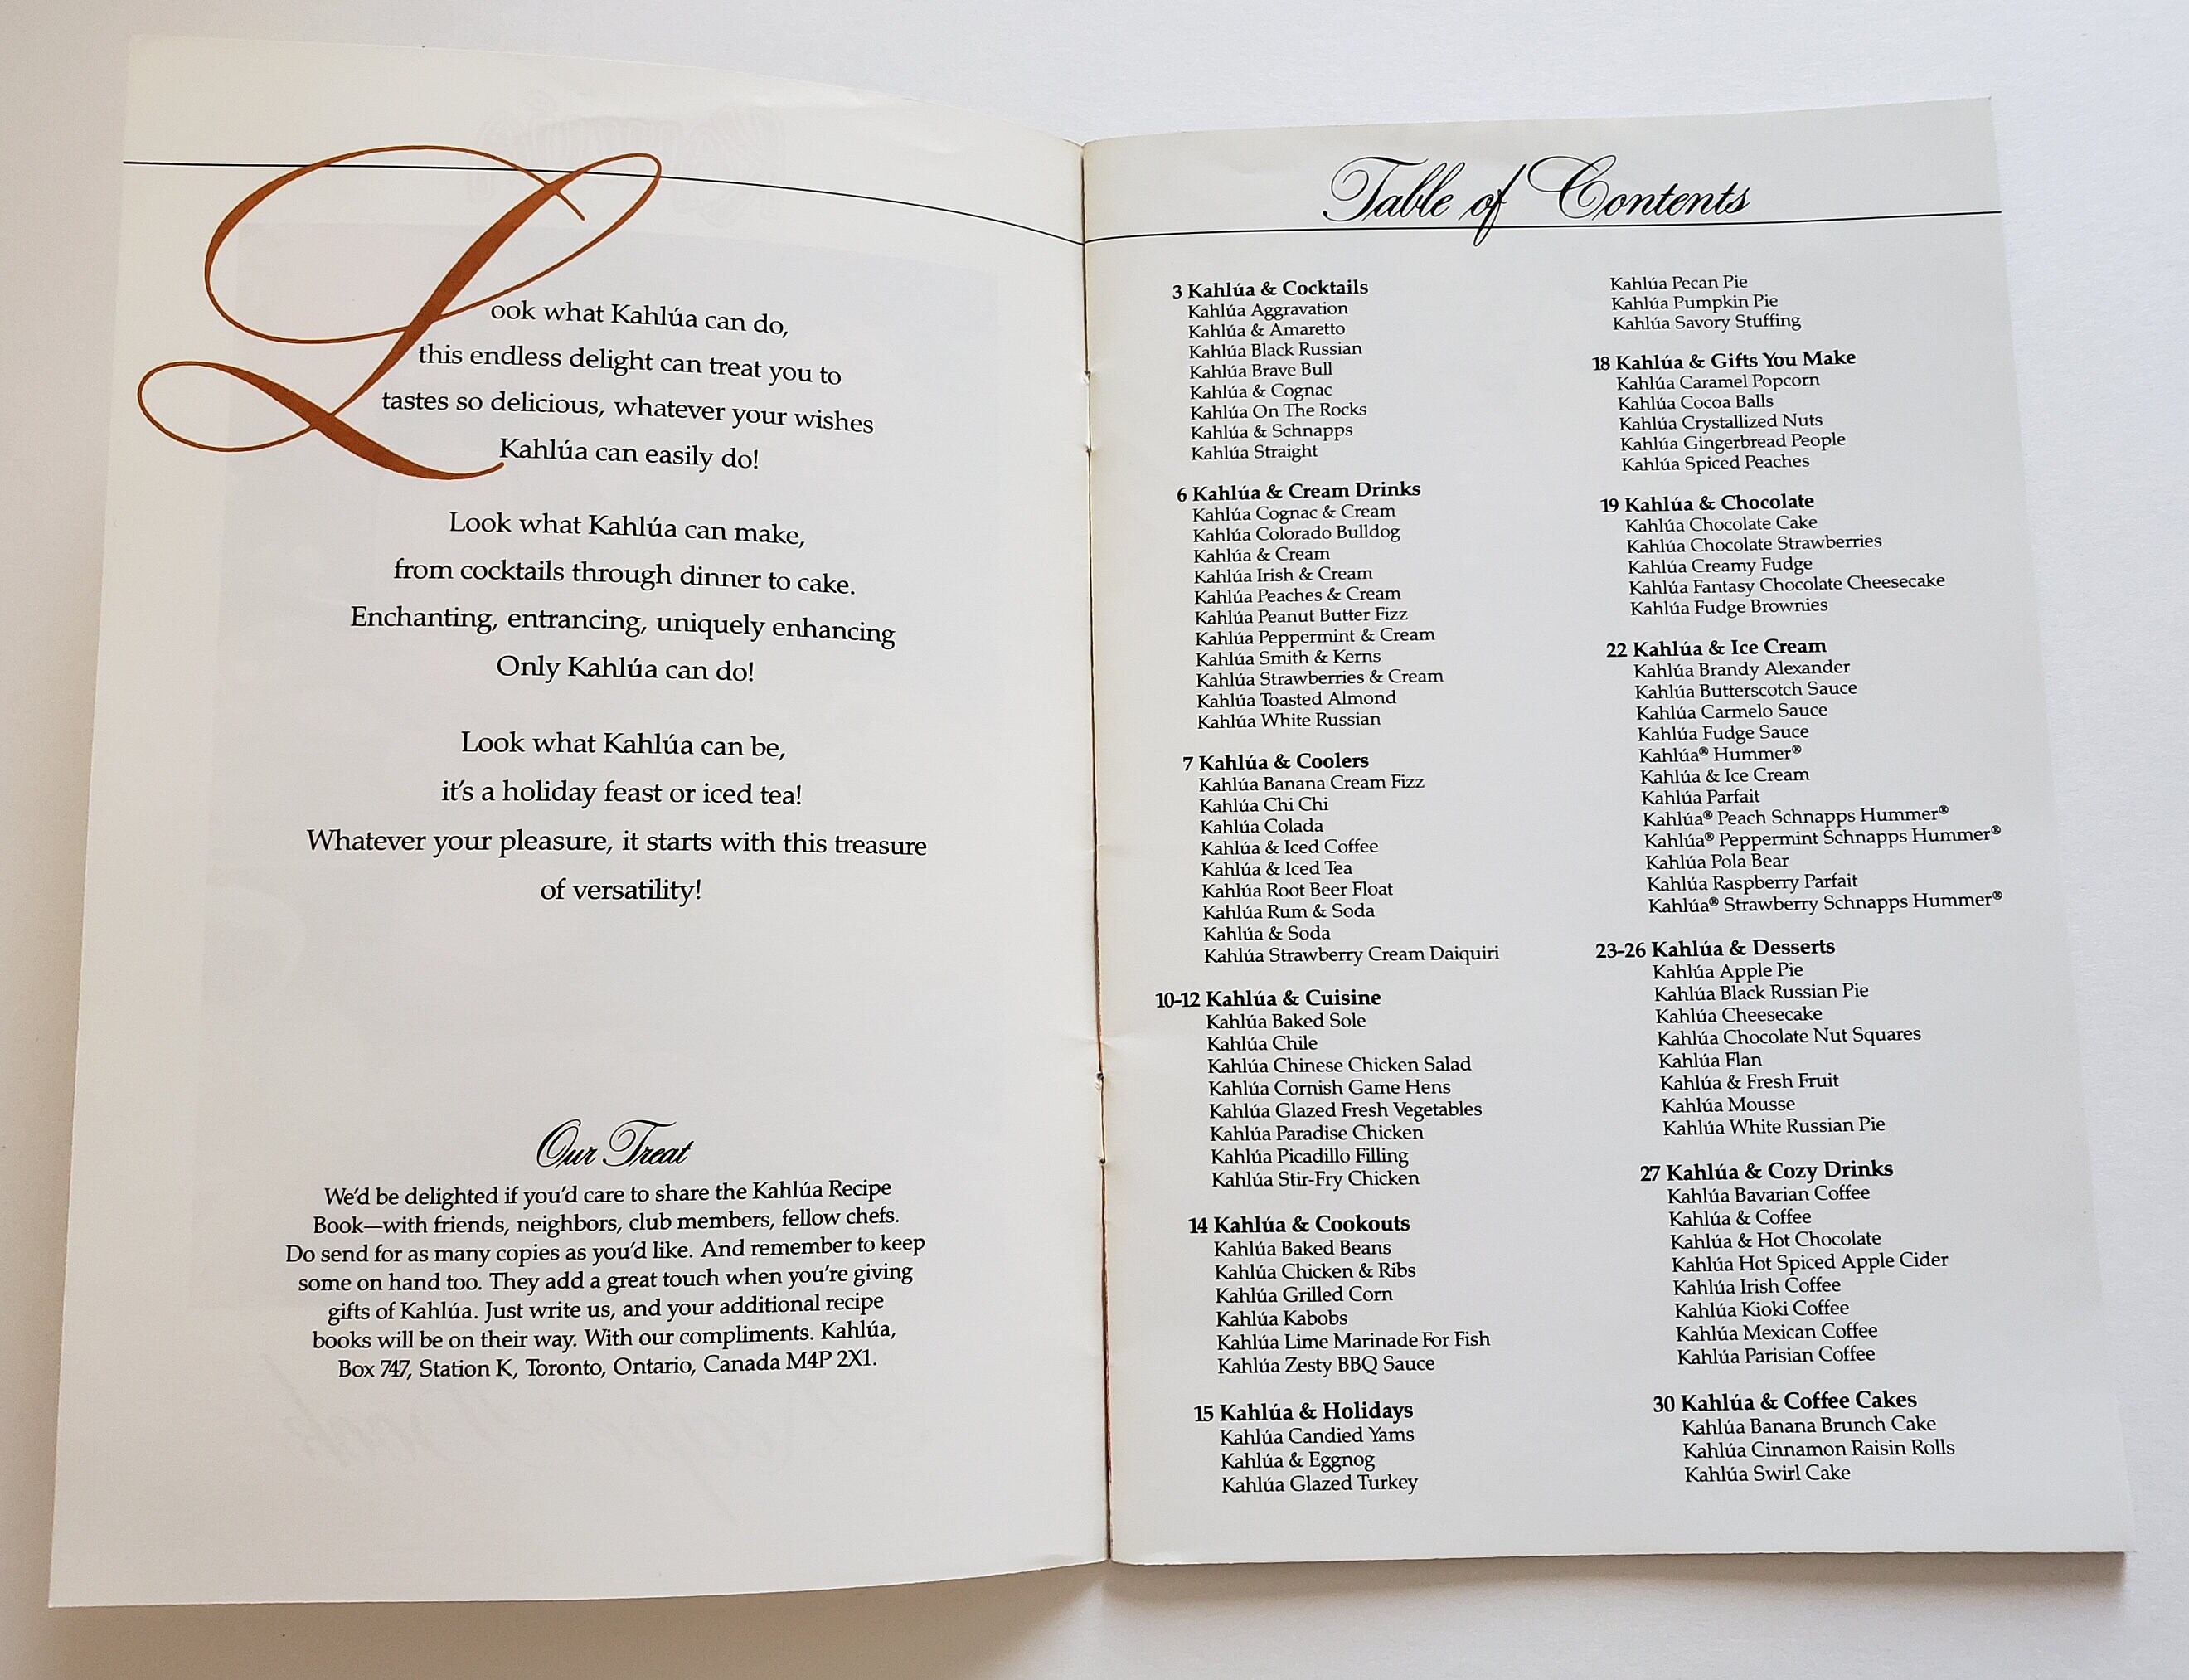 Look what Kahlúa can do,
this endless delight can treat you to
tastes so delicious, whatever your wishes
Kahlúa can easily do!
Look what Kahlúa can make,
from cocktails through dinner to cake.
Enchanting, entrancing, uniquely enhancing
Only Kahlúa can do!
Look what Kahlúa can be,
it's a holiday feast or iced tea!
Whatever your pleasure, it starts with this treasure
of versatility!
Our Treat
We'd be delighted if you'd care to share the Kahlúa Recipe
Book—with friends, neighbors, club members, fellow chefs.
Do send for as many copies as you'd like. And remember to keep
some on hand too. They add a great touch when you're giving
gifts of Kahlúa. Just write us, and your additional recipe
books will be on their way. With our compliments. Kahlúa,
Box 747, Station K, Toronto, Ontario, Canada M4P 2X1.
Table of Contents
3 Kahlúa & Cocktails
Kahlúa Aggravation
Kahlúa & Amaretto
Kahlúa Black Russian
Kahlúa Brave Bull
Kahlúa & Cognac
Kahlúa On The Rocks
Kahlúa & Schnapps
Kahlúa Straight
6 Kahlúa & Cream Drinks
Kahlúa Cognac & Cream
Kahlúa Colorado Bulldog
Kahlúa & Cream
Kahlúa Irish & Cream
Kahlúa Peaches & Cream
Kahlúa Peanut Butter Fizz
Kahlúa Peppermint & Cream
Kahlúa Smith & Kerns
Kahlúa Strawberries & Cream
Kahlúa Toasted Almond
Kahlúa White Russian
7 Kahlúa & Coolers
Kahlúa Banana Cream Fizz
Kahlúa Chi Chi
Kahlúa Colada
Kahlúa & Iced Coffee
Kahlúa & Iced Tea
Kahlúa Root Beer Float
Kahlúa Rum & Soda
Kahlúa & Soda
Kahlúa Strawberry Cream Daiquiri
10-12 Kahlúa & Cuisine
Kahlúa Baked Sole
Kahlúa Chile
Kahlúa Chinese Chicken Salad
Kahlúa Cornish Game Hens
Kahlúa Glazed Fresh Vegetables
Kahlúa Paradise Chicken
Kahlúa Picadillo Filling
Kahlúa Stir-Fry Chicken
14 Kahlúa & Cookouts
Kahlúa Baked Beans
Kahlúa Chicken & Ribs
Kahlúa Grilled Corn
Kahlúa Kabobs
Kahlúa Lime Marinade For Fish
Kahlúa Zesty BBQ Sauce
15 Kahlúa & Holidays
Kahlúa Candied Yams
Kahlúa & Eggnog
Kahlúa Glazed Turkey
Kahlúa Pecan Pie
Kahlúa Pumpkin Pie
Kahlúa Savory Stuffing
18 Kahlúa & Gifts You Make
Kahlúa Caramel Popcorn
Kahlúa Cocoa Balls
Kahlúa Crystallized Nuts
Kahlúa Gingerbread People
Kahlúa Spiced Peaches
19 Kahlúa & Chocolate
Kahlúa Chocolate Cake
Kahlúa Chocolate Strawberries
Kahlúa Creamy Fudge
Kahlúa Fantasy Chocolate Cheesecake
Kahlúa Fudge Brownies
22 Kahlúa & Ice Cream
Kahlúa Brandy Alexander
Kahlúa Butterscotch Sauce
Kahlúa Carmelo Sauce
Kahlúa Fudge Sauce
Kahlúa® Hummer®
Kahlúa & Ice Cream
Kahlúa Parfait
Kahlúa® Peach Schnapps Hummer®
Kahlúa® Peppermint Schnapps Hummer®
Kahlúa Pola Bear
Kahlúa Raspberry Parfait
Kahlúa® Strawberry Schnapps Hummer®
23-26 Kahlúa & Desserts
Kahlúa Apple Pie
Kahlúa Black Russian Pie
Kahlúa Cheesecake
Kahlúa Chocolate Nut Squares
Kahlúa Flan
Kahlúa & Fresh Fruit
Kahlúa Mousse
Kahlúa White Russian Pie
27 Kahlúa & Cozy Drinks
Kahlúa Bavarian Coffee
Kahlúa & Coffee
Kahlúa & Hot Chocolate
Kahlúa Hot Spiced Apple Cider
Kahlúa Irish Coffee
Kahlúa Kioki Coffee
Kahlúa Mexican Coffee
Kahlúa Parisian Coffee
30 Kahlúa & Coffee Cakes
Kahlúa Banana Brunch Cake
Kahlúa Cinnamon Raisin Rolls
Kahlúa Swirl Cake